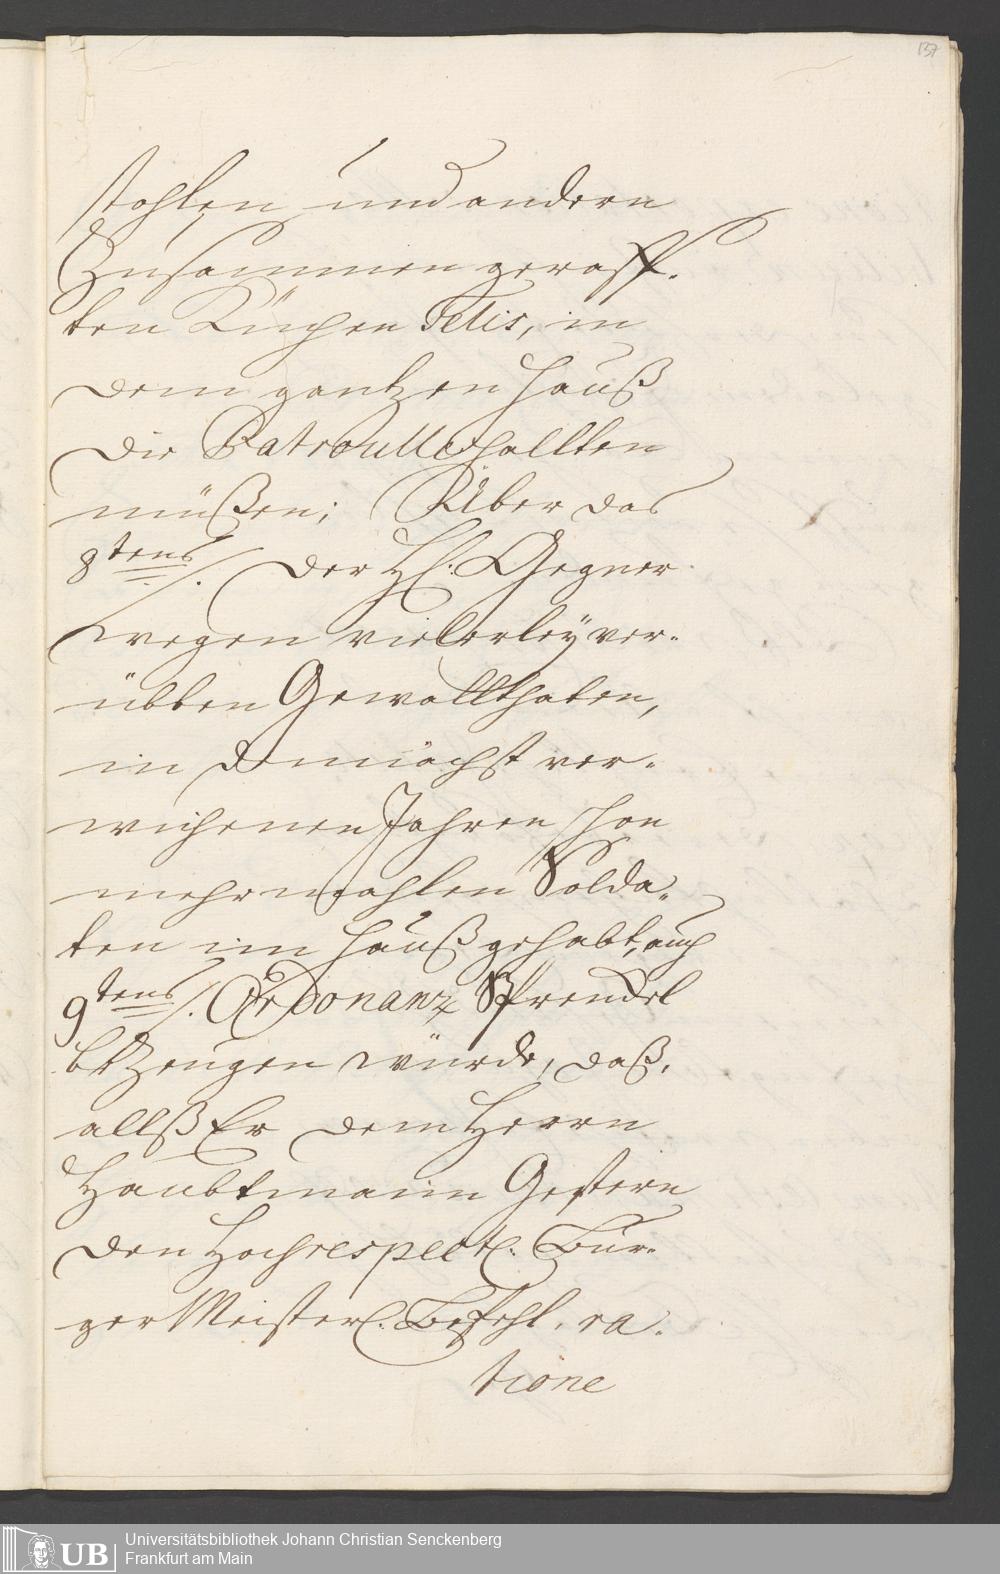 137
stohlen, und andern
Zusammen geraff-
ten Küchen Petis, in
dem gantzen Hauß
die Patroulle hallten
müßen; Über das
8tens /. der H. Gegner
wegen vielerley ver-
übten Gewallthaten,
in demnächst ver-
wichenen Jahren schon
mehrmahlen Solda-
ten im Hauß gehabt, auch
9tens /. Ordonanz Sprendel
bezeugen würde, daß,
allß Er dem Herrn
Haubtmann Gestern
den Hochrespectl. Bur-
ger Meisterl. Befehl, ra-
tione
UB
Universitätsbibliothek Johann Christian Senckenberg
Frankfurt am Main